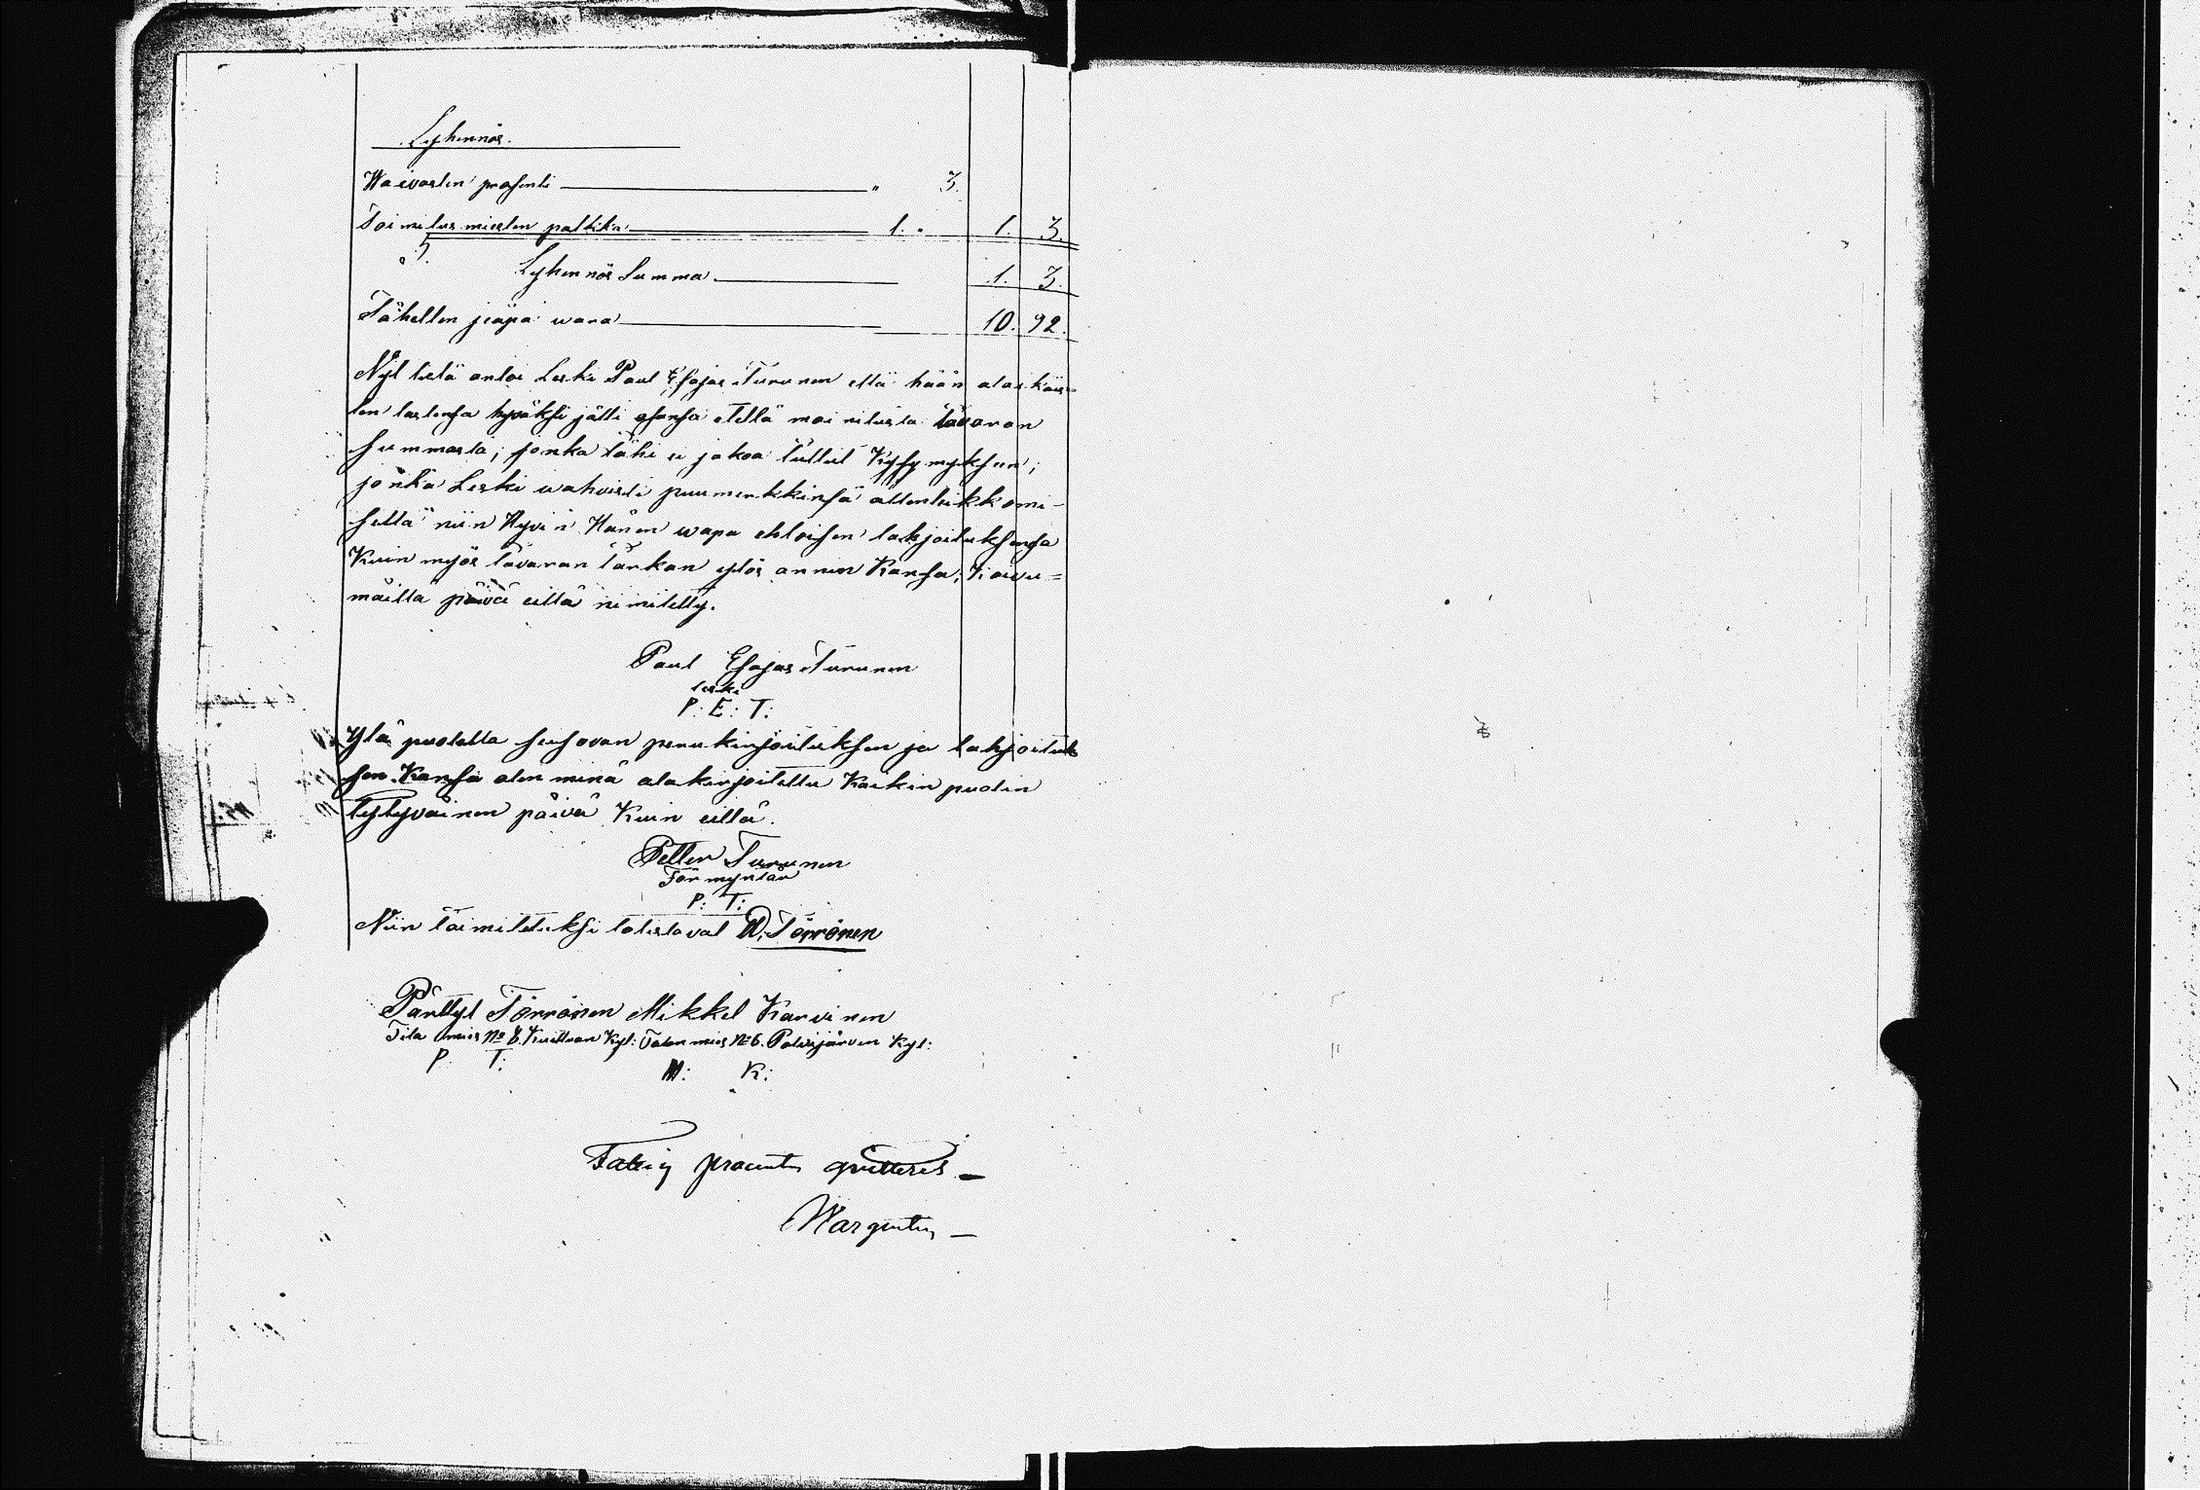 Lyhennös.
Waivasten prosenti " 3.
Toimitus miesten palkka 1. " 1. 3.
Lyhennös Summa 1. 3.
Tähellen jeäpä wara 10. 92.
Nyt tietä antoi Leski Paul Esajas Turunen että hään alaikäis=
ten lastensa hyväksi jätti osansa etellä mai nitusta tavaran
summasta; jonka tähi ei jakoa tullut Kysymykseen;
jonka Leski wahvisti puumerkkinsä allenleikkomi-
sella niin Hyvin Hänen wapa ehtoisen lahjoituksensa
Kuin myös Tavaran tarkan ylös annon Kansa; Koivu=
mäillä päivä eillä nimitetty.
Paul Esajas Turunen
leski
P: E: T:
Ylä puolella seisovan perukirjoituksen ja lahjoituk
sen Kansa olen minä alakirjoitettu Kaikin puolin
Tytyväinen päivä Kuin eillä.
Petter Turunen
Förmyntäri
P: T:
Niin toimitetuksi totistavat W. Törrönen
Pärttyl Törrönen Mikkel Karvinen
Tila mies No 8. Kyl: Talon mies No 6. Polvijärven Kyl:
P. T: M: K:
Fattig procenten qvitteres –
Wargentin –